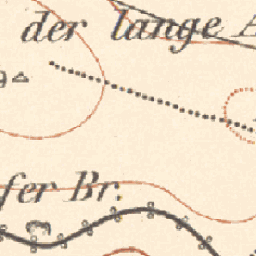 der lange A
fer Br.